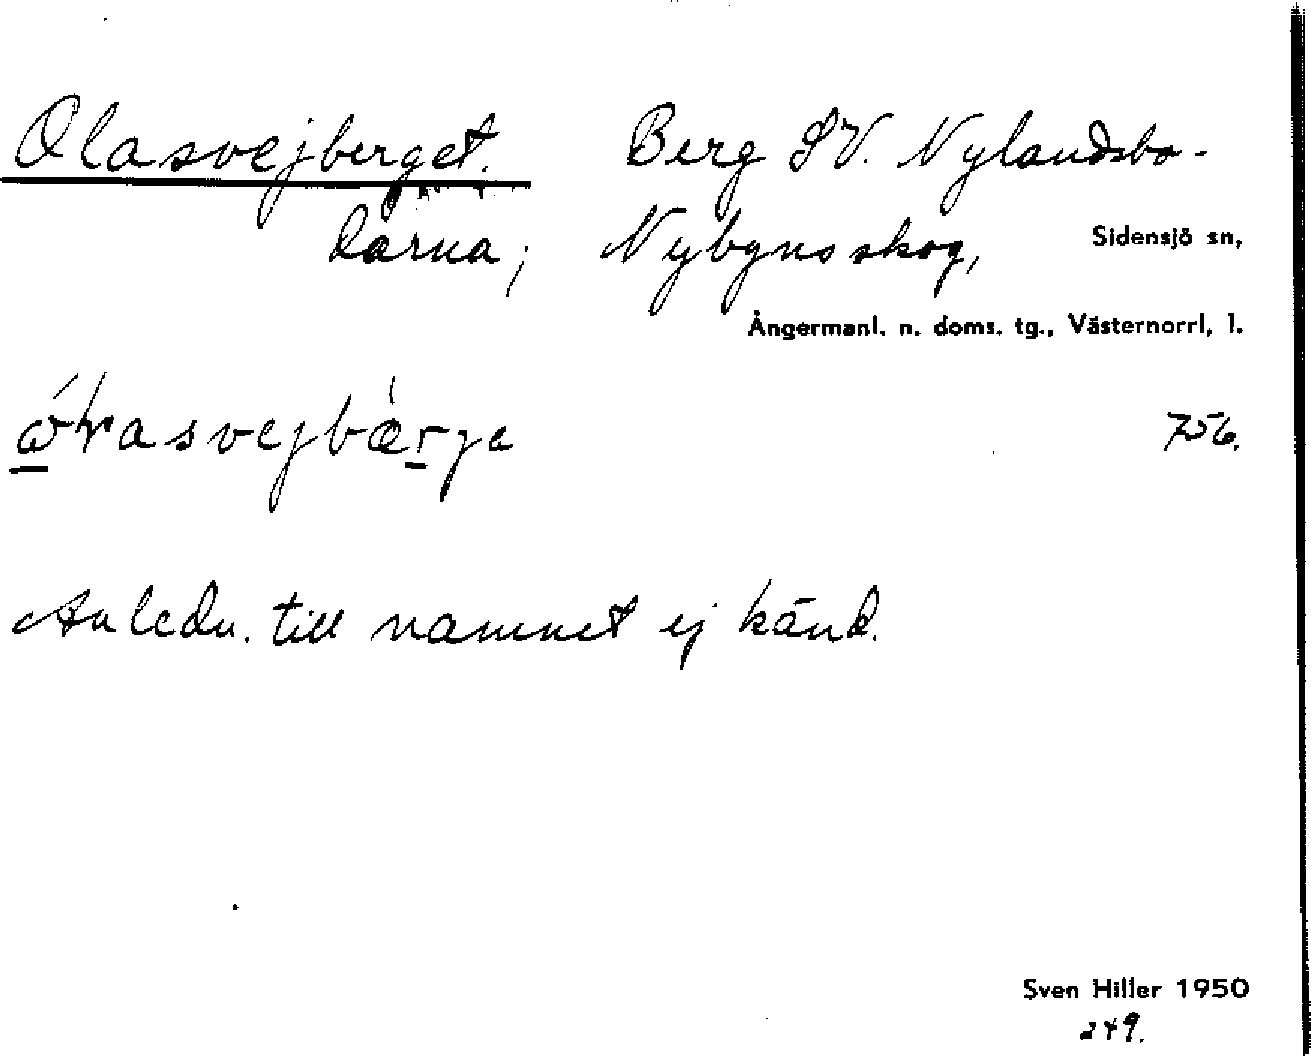 Olasvejberget. Berg SV. Nylandsbo-
darna; Nybyns skog, Sidensjö sn,
Ångermanl. n. doms. tg., Västernorrl. l.
756.
Anledn. till namnet ej känd.
Sven Hiller 1950
249.